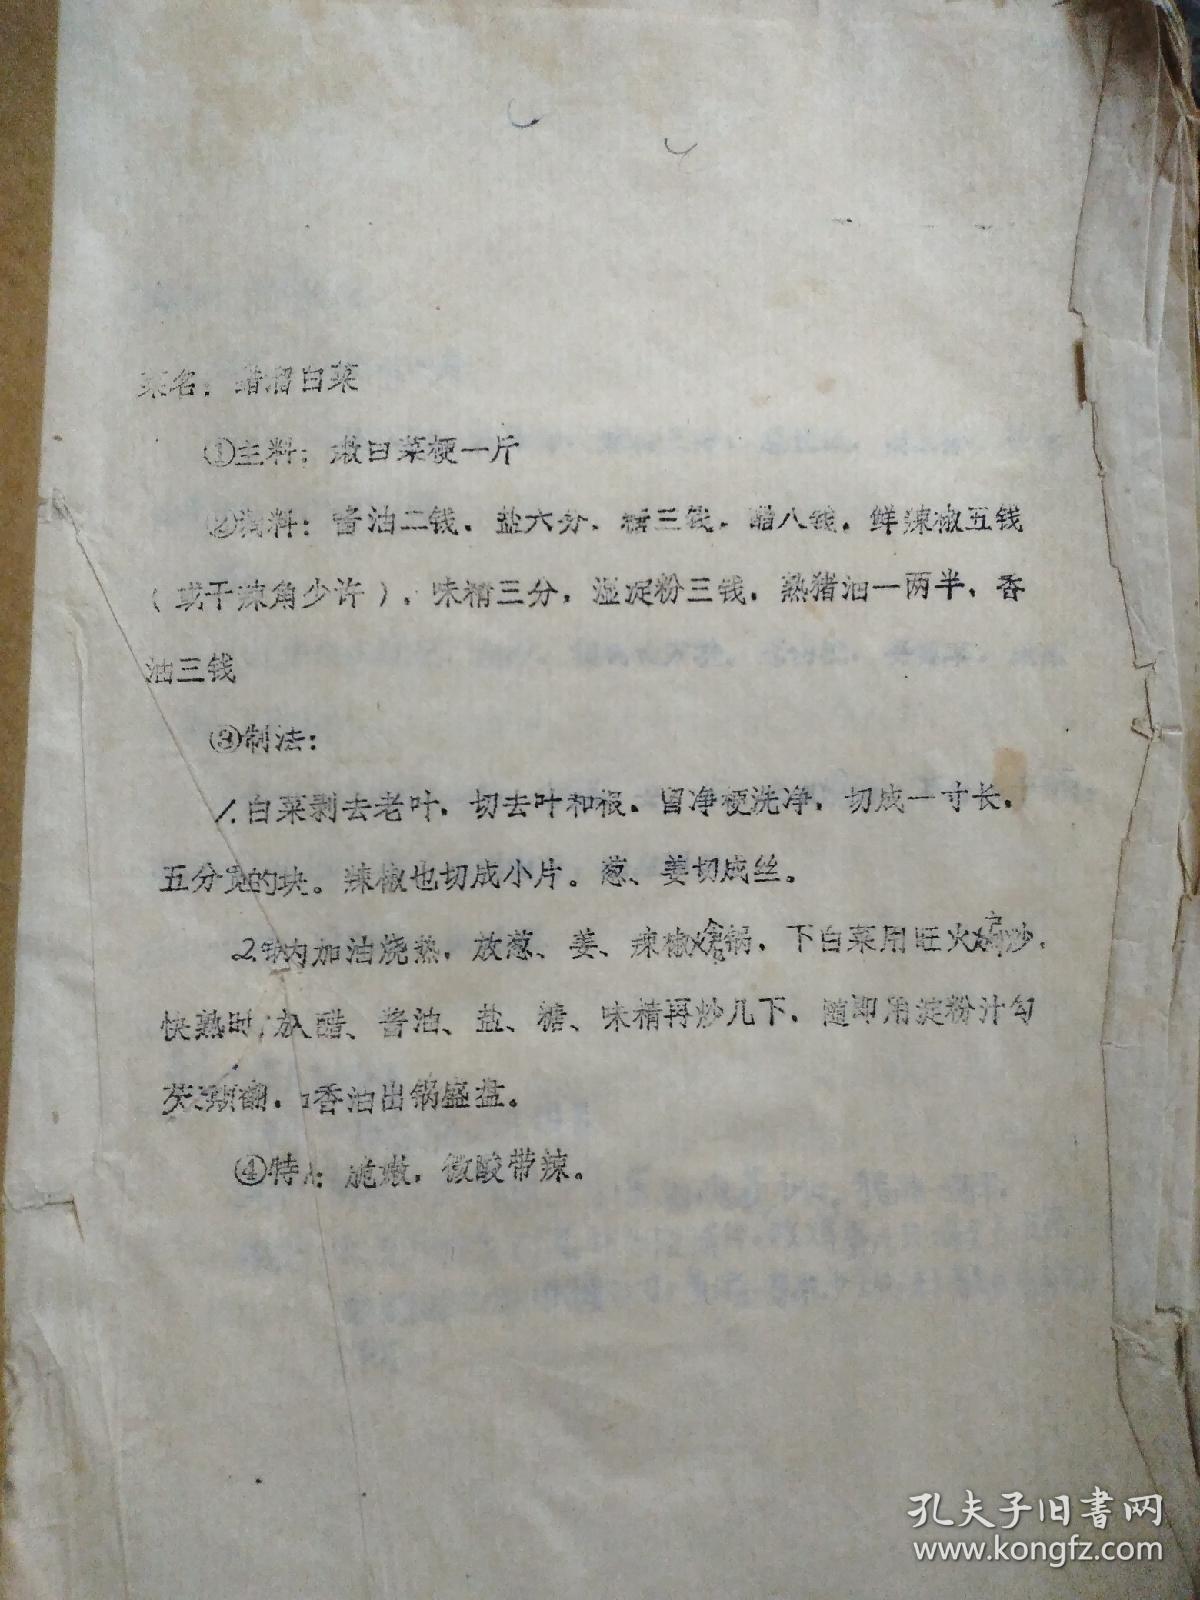 菜名：醋溜白菜
①主料：嫩白菜梗一斤
②调料：酱油二钱，盐六分，糖三钱，醋八钱，鲜辣椒五钱
（或干辣角少许），味精三分，湿淀粉三钱，熟猪油一两半，香
油三钱
③制法：
1.白菜剥去老叶，切去叶和根，留净梗洗净，切成一寸长，
五分宽的块。辣椒也切成小片。葱、姜切成丝。
2.锅内加油烧热，放葱、姜、辣椒炝锅，下白菜用旺火煸炒，
快熟时，放入醋、酱油、盐、糖、味精再炒几下，随即用淀粉汁勾
芡，颠翻，加香油出锅盛盘。
④特点：脆嫩，微酸带辣。
孔夫子旧書网
www.kongfz.com